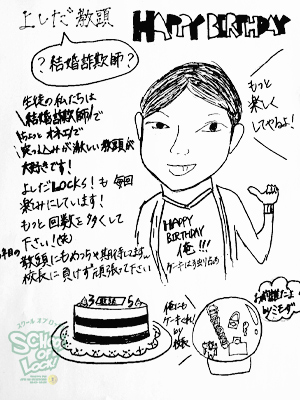 よしだ教頭
HAPPY BIRTHDAY
?結婚詐欺師?
もっと
楽しく
してやるよ!
生徒の私たちは
結婚詐欺師で
ちょっとオネエで
突っ込みが激しい教頭が
大好きです!
よしだLOCKS!も毎回
楽みにしています!
もっと回数を多くして
下さい!(笑)
教頭にもめっちゃ期待してます。
校長に負けず頑張って下さい
HAPPY
BIRTHDAY
俺!!!
ケーキは独り占め
3
5
俺にも
ケーキくれ!
by
校長
スクール オブ ロック
SCHOOL
OF
LOCK!